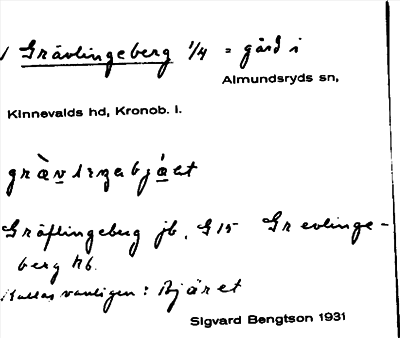 Grävlingeberg 1/4 = gård i
Almundsryds sn,
Kinnevalds hd, Kronob. l.
Gräflingeberg jb. G 15 Grevlinge-
berg hb.
Kallas vanligen: Bjäret
Sigvard Bengtson 1931